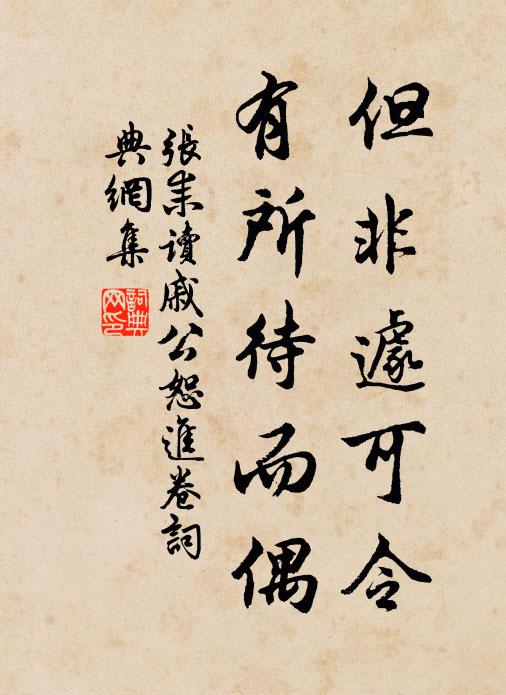 但非遽可令
有所待而偶
張耒讀戚公恕進卷詞
典網集
詞典網印